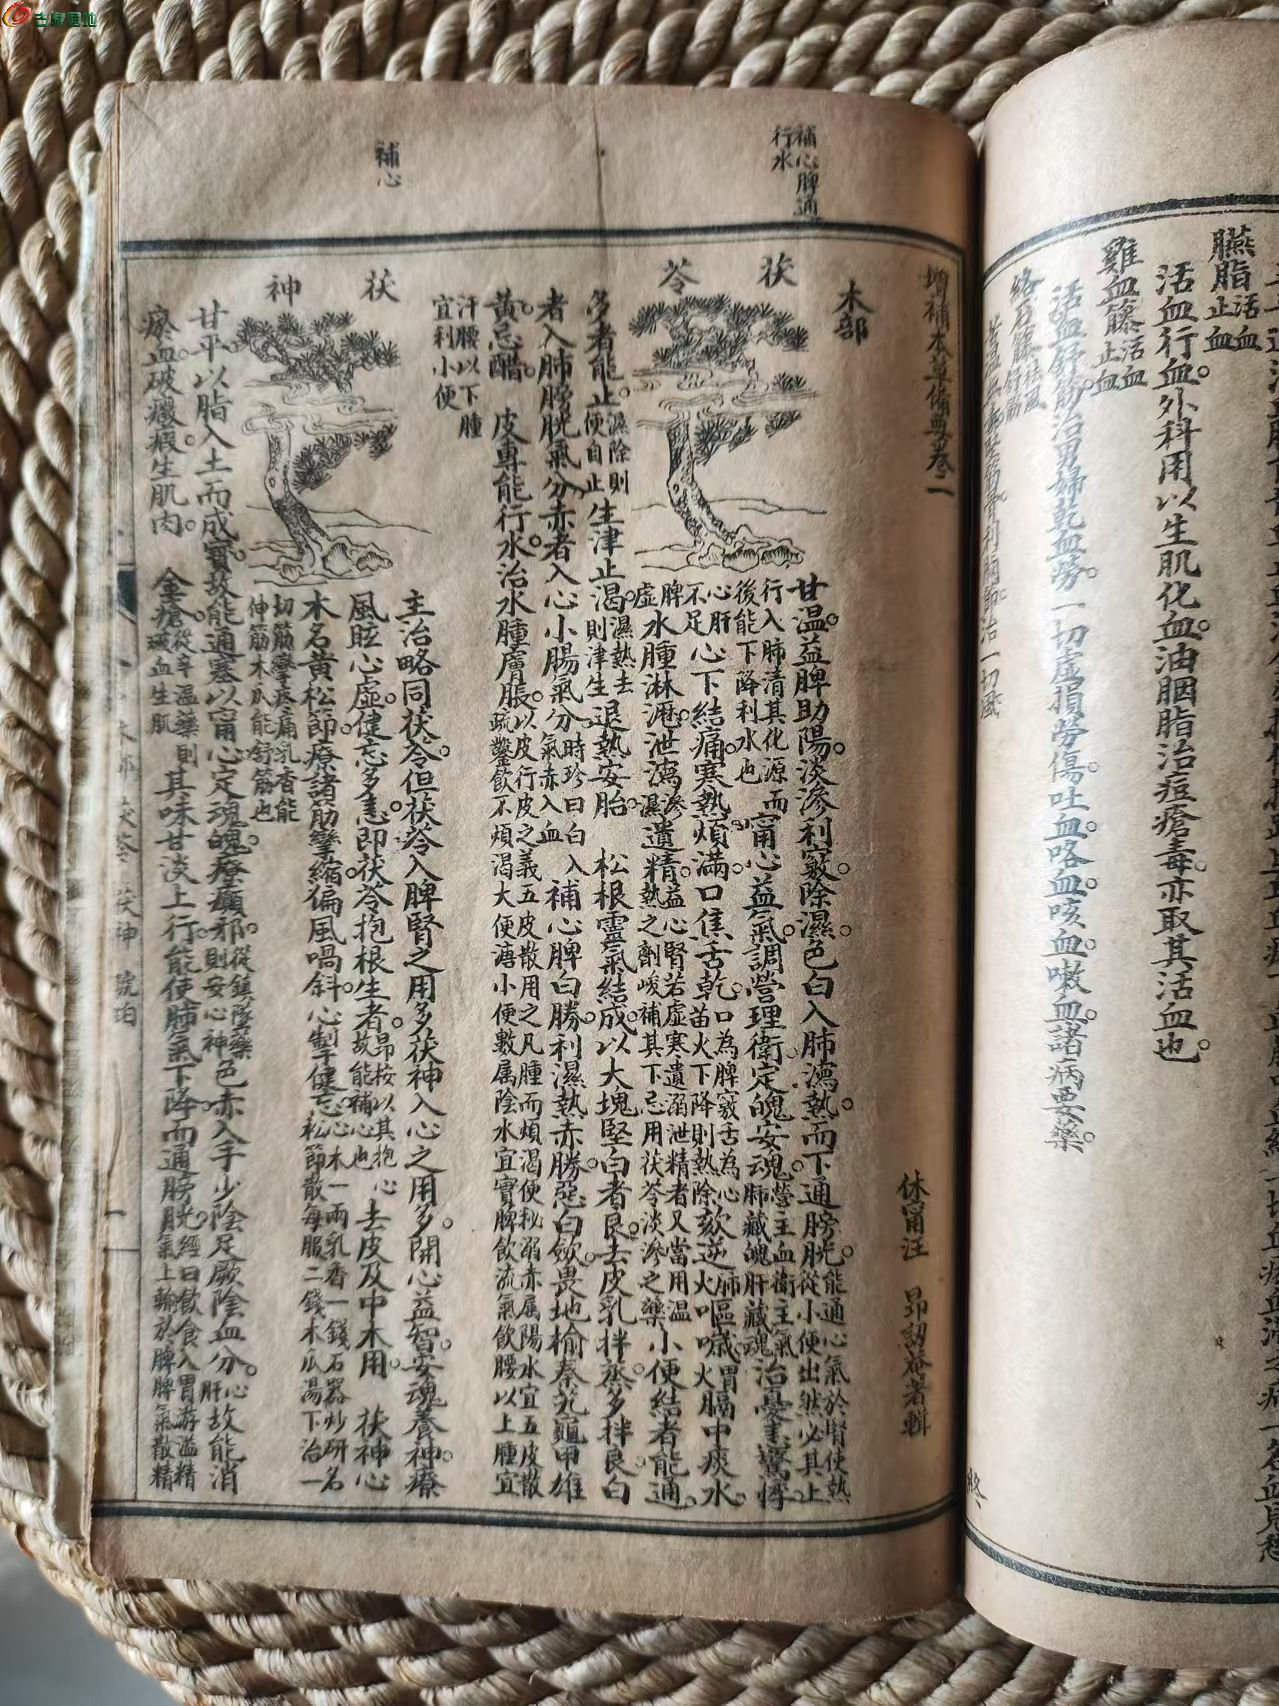 臙脂 活血止血
活血行血。外科用以生肌化血。油胭脂治痘瘡毒。亦取其活血也。
雞血藤 活血止血
活血舒筋治男婦乾血勞。一切虛損勞傷。吐血咯血。咳血嗽血。諸病要藥。
終
補心脾通行水
補心
增補本草備要卷二
木部
休甯汪 昂訒菴著輯
茯苓
甘溫。益脾助陽。淡滲利竅除濕。色白入肺瀉熱。而下通膀胱。能通心氣於腎使熱從小便出然必其上
行入肺清其化源而後能下降利水也甯心益氣。調營理衛。定魄安魂。營主血衛主氣肺藏魄肝藏魂治憂恚驚悸
心肝不足心下結痛。寒熱煩滿。口焦舌乾。口為脾竅舌為心苗火下降則熱除欬逆肺火嘔噦胃火膈中痰水。
脾虛水腫淋瀝。泄瀉滲濕遺精。益心腎若虛寒遺溺泄精者又當用溫熱之劑峻補其下忌用茯苓淡滲之藥小便結者能通。
多者能止。濕除則便自止生津止渴。濕熱去則津生退熱安胎 松根靈氣結成。以大塊堅白者良。去皮乳拌蒸。多拌良白
者入肺膀胱氣分赤者入心小腸氣分時珍曰白入氣赤入血補心脾白勝。利濕熱赤勝。惡白斂畏地榆秦艽龜甲雄
黃。忌醋。 皮專能行水。治水腫膚脹。以皮行皮之義五皮散用之凡腫而煩渴便秘溺赤屬陽水宜五皮散疏鑿飲不煩渴大便溏小便數屬陰水宜實脾飲流氣飲腰以上腫宜
汗腰以下腫宜利小便
茯神
主治略同茯苓。但茯苓入脾腎之用多。茯神入心之用多。開心益智。安魂養神。療
風眩心虛。健忘多恚。即茯苓抱根生者。昂按以其抱心故能補心也去皮及中木用。 茯神心
木名黃松節。療諸筋攣縮偏風喎斜。心掣健忘。心木一兩乳香一錢石器炒研名松節散每服二錢木瓜湯下治一
切筋攣疼痛乳香能伸筋木瓜能舒筋也
甘平。以脂入土而成寶。故能通塞以甯心定魂魄。療癲邪。從鎮墜藥則安心神色赤入手少陰足厥陰血分。心肝故能消
瘀血破癥瘕。生肌肉。 金瘡。從辛溫藥則破血生肌其味甘淡上行。能使肺氣下降。而通膀胱。經曰飲食入胃游溢精氣上輸於脾脾氣散精
木部 茯苓 茯神 琥珀
一